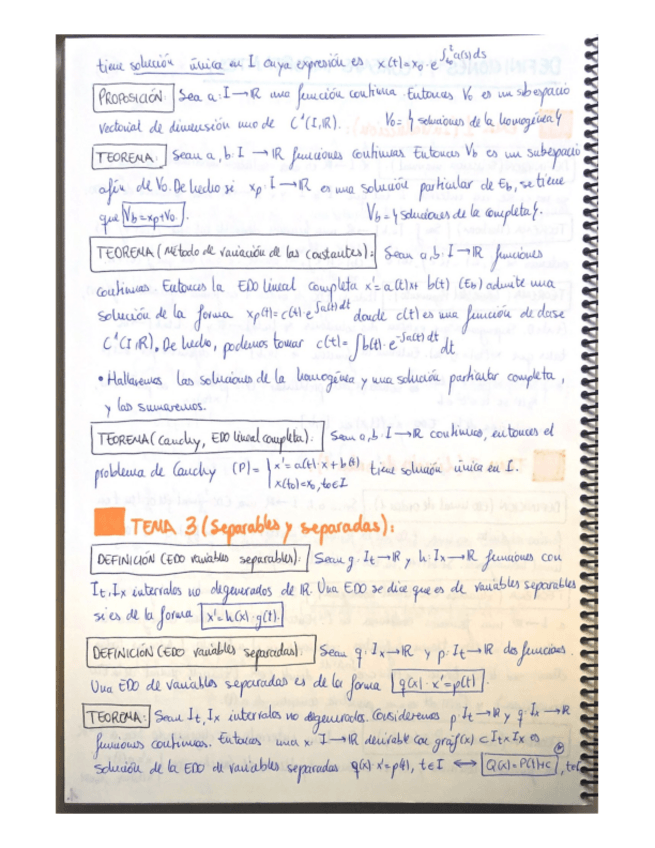 tiene solución única en I cuya expresión es x(t)=x₀·e^∫_{t₀}^{t} a(s)ds
PROPOSICIÓN: Sea a: I→ℝ una función continua. Entonces V₀ es un subespacio
vectorial de dimensión uno de C¹(I,ℝ). V₀={soluciones de la homogénea}
TEOREMA: Sean a, b: I→ℝ funciones continuas. Entonces V_b es un subespacio
afín de V₀. De hecho si x_p: I→ℝ es una solución particular de E_b, se tiene
que V_b=x_p+V₀. V_b={soluciones de la completa}.
TEOREMA (Método de variación de las constantes): Sean a, b: I→ℝ funciones
continuas. Entonces la EDO lineal completa x'=a(t)x+b(t) (E_b) admite una
solución de la forma x_p(t)=c(t)·e^∫a(t)dt donde c(t) es una función de clase
C¹(I,ℝ). De hecho, podemos tomar c(t)=∫b(t)·e^-∫a(t)dt dt
• Hallaremos las soluciones de la homogénea y una solución particular completa,
y las sumaremos.
TEOREMA (Cauchy, EDO lineal completa): Sean a, b: I→ℝ continuas, entonces el
problema de Cauchy (P)={x'=a(t)·x+b(t) tiene solución única en I.
x(t₀)=x₀, t₀∈I
TEMA 3 (Separables y separadas):
DEFINICIÓN (EDO variables separables): Sean g: I_t→ℝ y h: I_x→ℝ funciones con
I_t, I_x intervalos no degenerados de ℝ. Una EDO se dice que es de variables separables
si es de la forma x'=h(x)·g(t).
DEFINICIÓN (EDO variables separadas): Sean q: I_x→ℝ y p: I_t→ℝ dos funciones.
Una EDO de variables separadas es de la forma q(x)·x'=p(t).
TEOREMA: Sean I_t, I_x intervalos no degenerados. Consideremos p: I_t→ℝ y q: I_x→ℝ
funciones continuas. Entonces una x: I→ℝ derivable con graf(x)⊂I_t×I_x es
solución de la EDO de variables separadas q(x)·x'=p(t), t∈I ⟷ Q(x)=P(t)+c, t∈